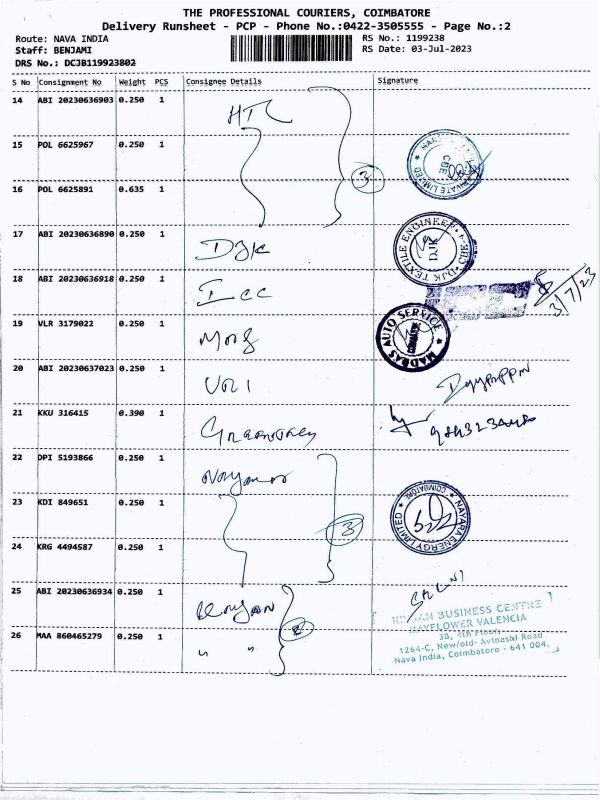 THE PROFESSIONAL COURIERS, COIMBATORE
Delivery Runsheet - PCP - Phone No.:0422-3505555 - Page No.:2
Route: NAVA INDIA
Staff: BENJAMI
DRS No.: DCJB119923802
RS No.: 1199238
RS Date: 03-Jul-2023
S No Consignment No Weight PCS Consignee Details Signature
14 ABI 20230636903 0.250 1 HTC
15 POL 6625967 0.250 1
3
16 POL 6625891 0.635 1
17 ABI 20230636890 0.250 1 DJK
DJK TEXTILE ENGINEER
DJK
18 ABI 20230636918 0.250 1 Icc
3/7/23
19 VLR 3179022 0.250 1
MADRAS AUTO SERVICE
20 ABI 20230637023 0.250 1
21 KKU 316415 0.390 1
22 DPI 5193866 0.250 1
23 KDI 849651 0.250 1
3
NAYARA ENERGY LIMITED
COIMBATORE
24 KRG 4494587 0.250 1
25 ABI 20230636934 0.250 1
BUSINESS CENTRE
MAYFLOWER VALENCIA
26 MAA 860465279 0.250 1 " "
3B, 4th Floor,
1264-C, New/old- Avineshi Road
Nava India, Coimbatore - 641 004.